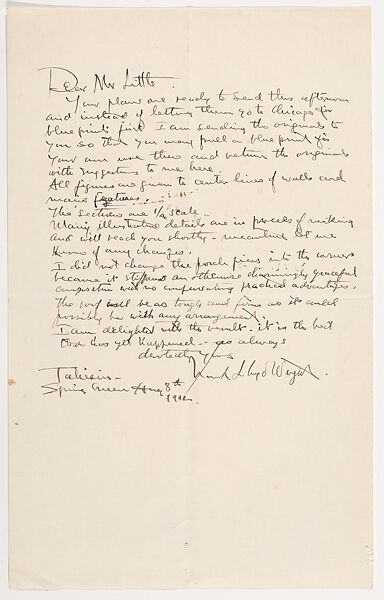 Dear Mr Little.
Your plans are ready to send this afternoon
and instead of letting them go to Chicago for
blueprints first I am sending the originals to
you so that you may pull a blueprint for
your own use there and return the originals
with suggestions to me here.
All figures are given to center lines of walls and
main features
The sections are 1/2 scale.
Many illustrative details are in process of making
and will reach you shortly - meanwhile let me
know of any changes.
I did not change the porch piers into the corners
because it stiffened an otherwise charmingly graceful
composition with no compensating practical advantages.
The roof will be as tough and firm as it could
possibly be with any arrangement.
I am delighted with the result. it is the best
has yet happened - as always
devotedly yours
Frank Lloyd Wright.
Taliesin -
Spring Green Aug 8th
1912.